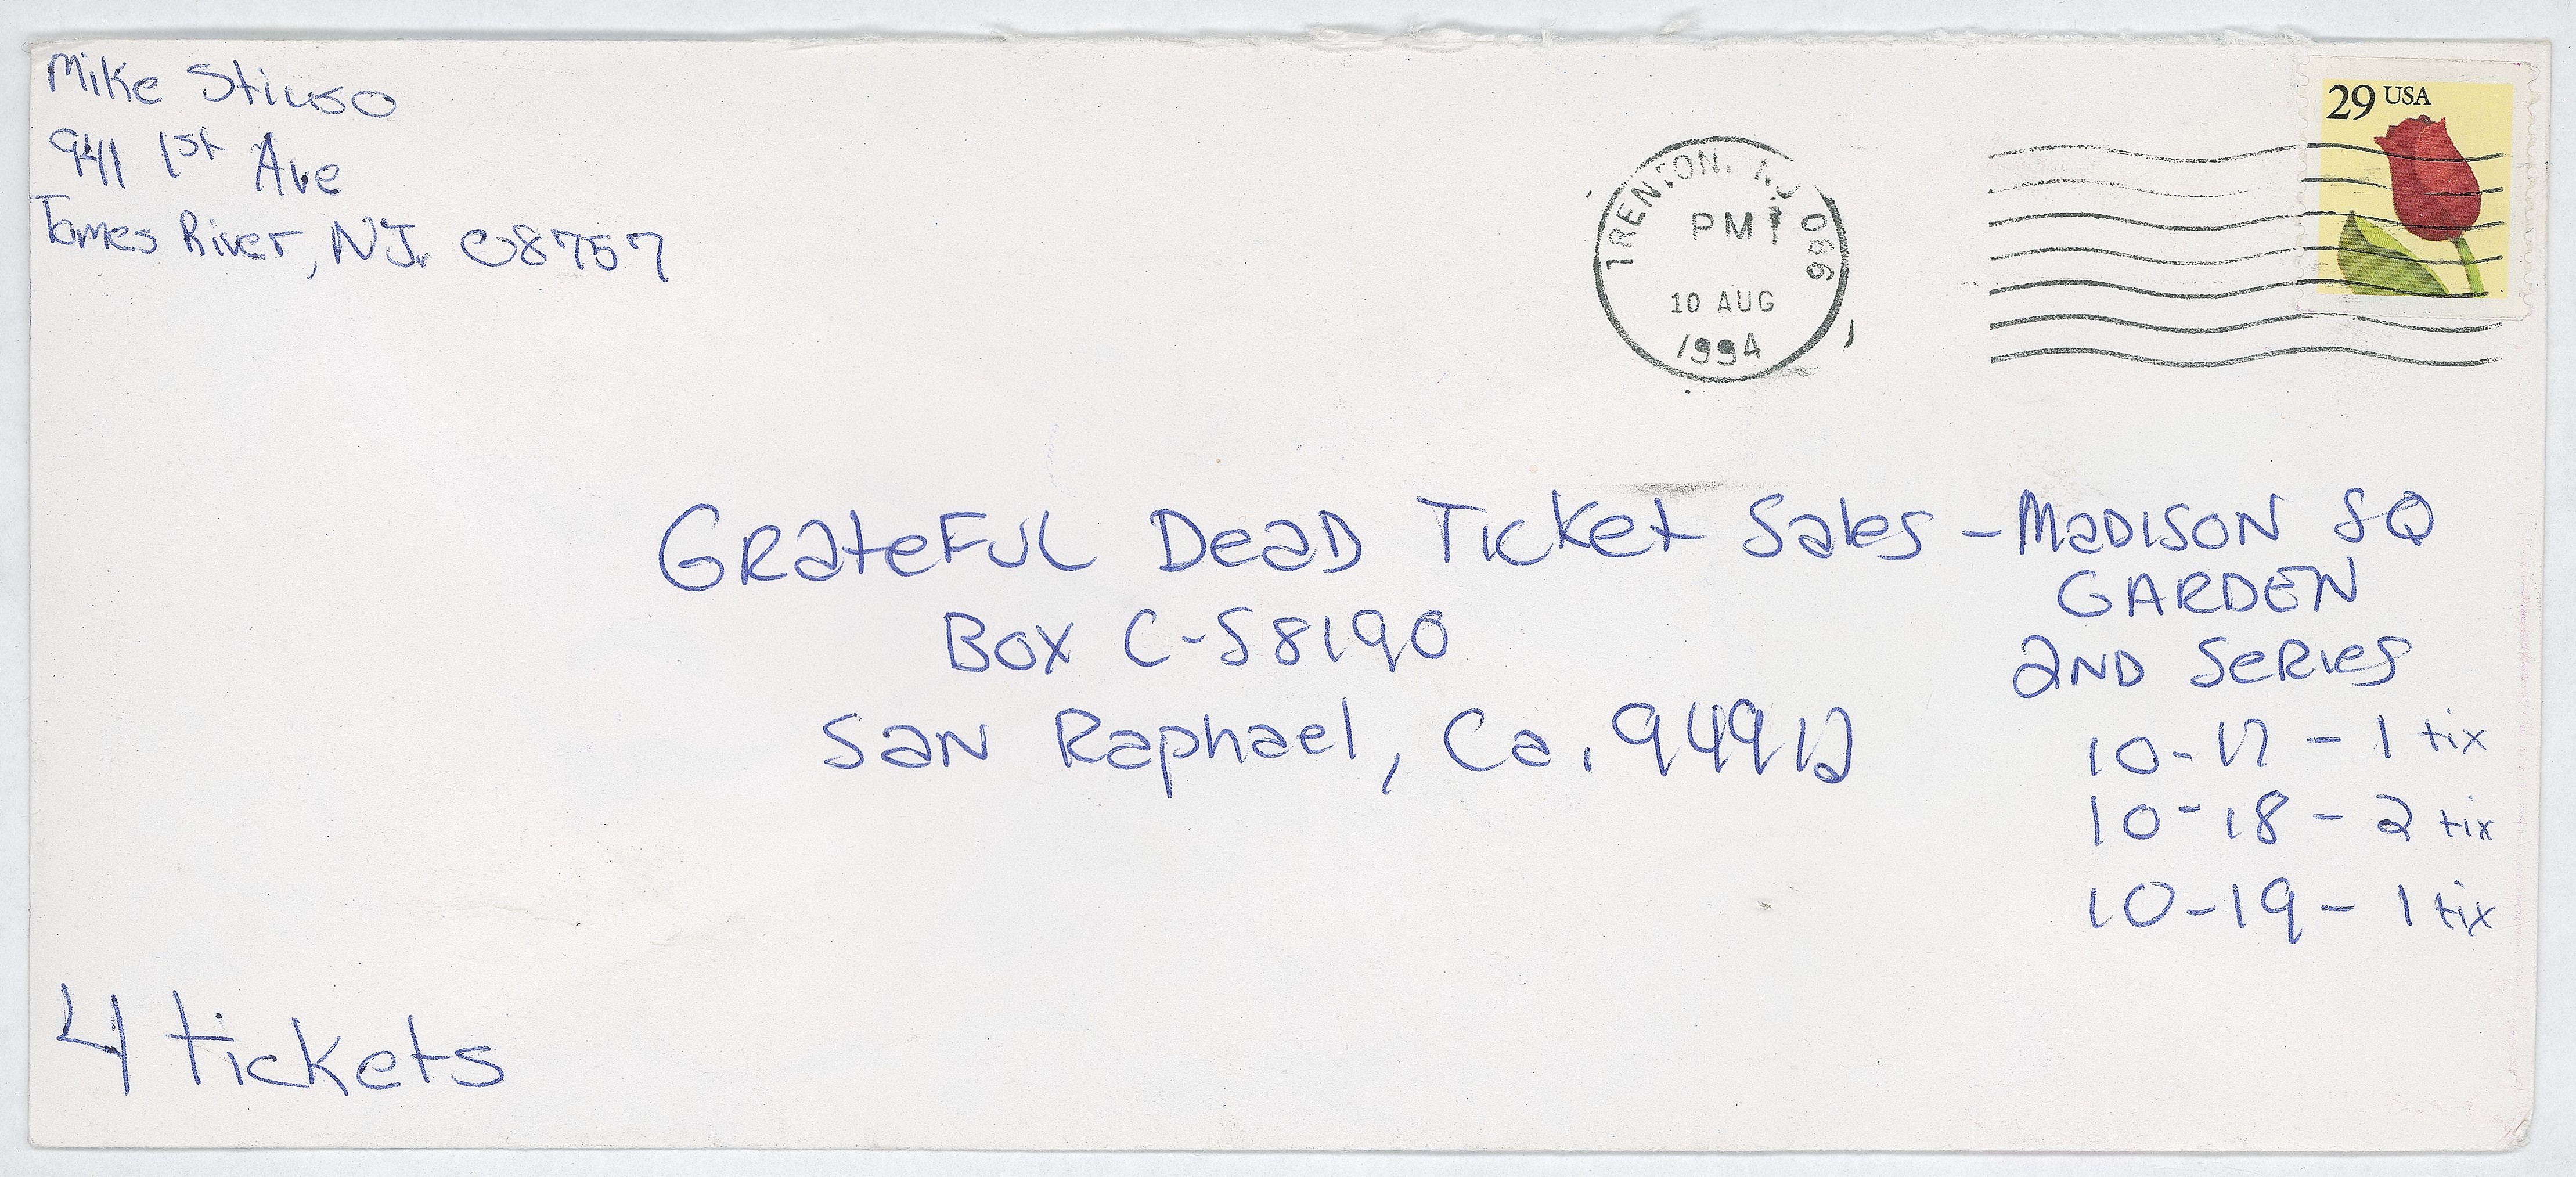 Mike Stiuso
941 1st Ave
Tomes River, NJ. 08757
TRENTON, NJ 086
PM
10 AUG
1994
29 USA
GRateFUL DeaD Ticket Sales - MaDISON SQ
GARDEN
Box C-S8190
2ND SeRies
SaN Raphael, Ca. 94912
10-17 - 1 tix
10-18 - 2 tix
10-19 - 1 tix
4 tickets